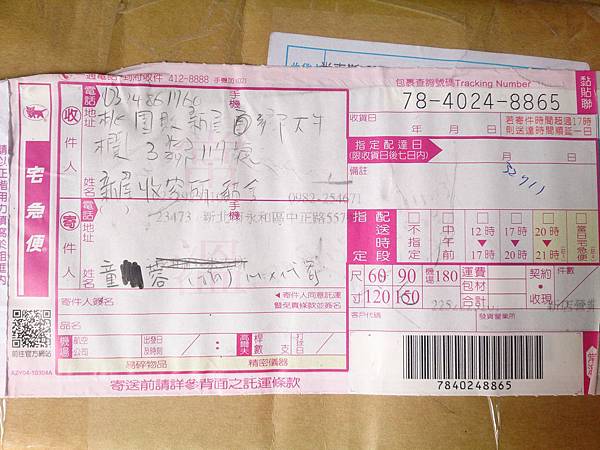 一通電話 到府收件 412-8888 手機加(02)
包裹查詢號碼Tracking Number
78-4024-8865
黏貼聯
收件人
電話 034861760
手機
地址 桃園縣新屋鄉大牛
欄3鄰117號
姓名 新屋收容所
0982-254671
收貨日
年 月 日
若寄件時間超過17時
則送達時間順延一日
指定配達日
(限收貨日後七日內)
年 月 日
備註
宅急便
請以正楷用力填寫於粗框內
寄件人
電話
手機
地址 23473 新北 永和區中正路557
姓名 童 蓉
指定
配送時段
不指定
中午前
12時
17時
17時
20時
20時
21時
當日宅急便
尺寸
60 90
120 150
機場 180
運費
包材
合計
契約
收現
件數
寄件人簽名
◄寄件人同意託運
暨免責條款並簽名
客戶代碼
發貨營業所
品名
機場
航空公司
出發日及時刻
高爾夫
桿數 支
打球日
易碎物品
精密儀器
前往官方網站
A2Y04-10304A
寄送前請詳參背面之託運條款
7840248865